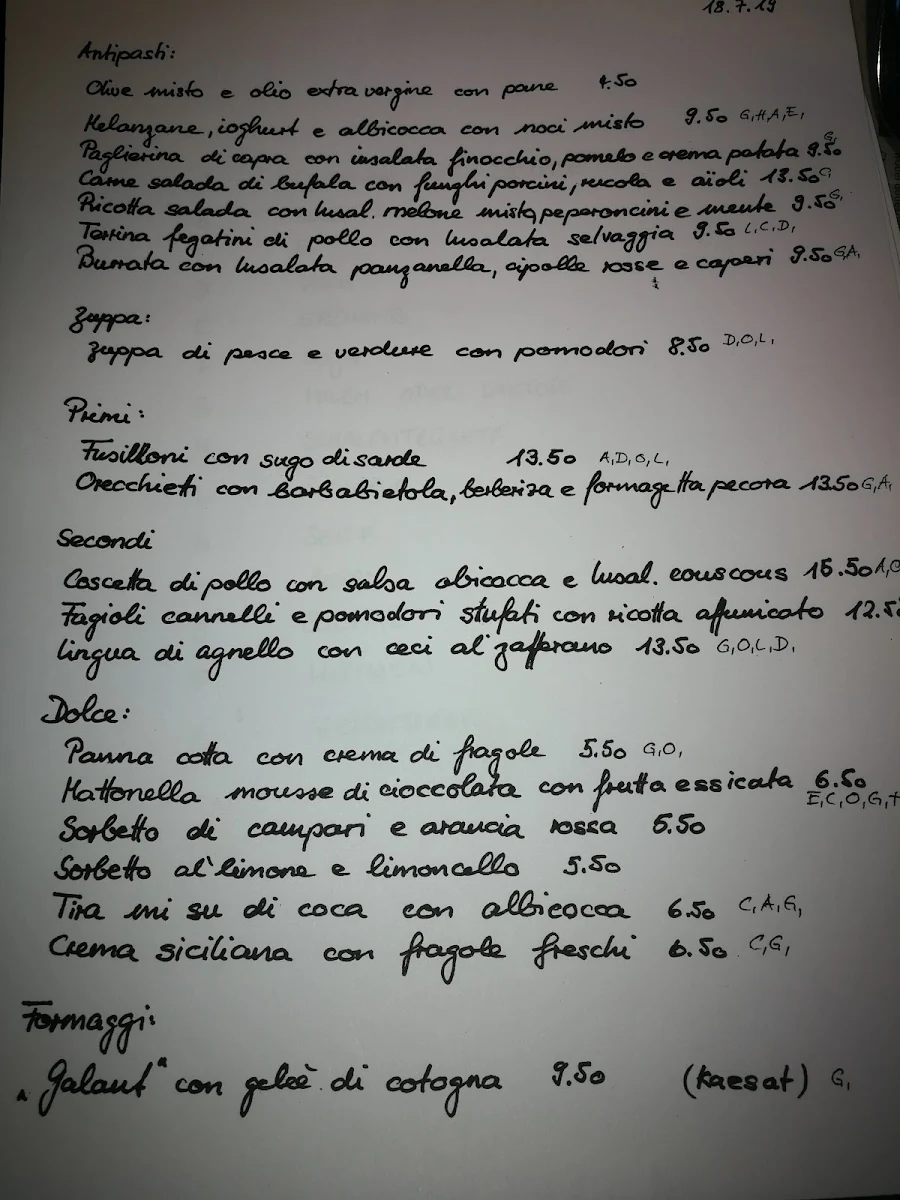 18.7.19
Antipasti:
Olive misto e olio extra vergine con pane 4.50
Melanzane, ioghurt e albicocca con noci misto 9.50 G,H,A,E,
Paglierina di capra con insalata finocchio, pomelo e crema patata 9.50 G,
Carne salada di bufala con funghi porcini, rucola e aïoli 13.50 G
Ricotta salada con Insal. melone misto, peperoncini e mente 9.50 G,
Terrina fegatini di pollo con Insalata selvaggia 9.50 L,C,D,
Burrata con Insalata panzanella, cipolle rosse e caperi 9.50 G,A,
Zuppa:
Zuppa di pesce e verdure con pomodori 8.50 D,O,L,
Primi:
Fusilloni con sugo di sarde 13.50 A,D,O,L,
Orecchieti con barbabietola, berberiza e formagetta pecora 13.50 G,A,
Secondi
Coscetta di pollo con salsa abicocca e Insal. couscous 15.50 A,
Fagioli cannelli e pomodori stufati con ricotta affumicato 12.5
Lingua di agnello con ceci al'zafferano 13.50 G,O,L,D,
Dolce:
Panna cotta con crema di fragole 5.50 G,O,
Mattonella mousse di cioccolata con frutta essicata 6.50
E,C,O,G,H
Sorbetto di campari e arancia rossa 5.50
Sorbetto al'limone e limoncello 5.50
Tira mi su di coca con albicocca 6.50 C,A,G,
Crema siciliana con fragole freschi 6.50 C,G,
Formaggi:
„Galaut“ con geleè di cotogna 9.50 (Kaesat) G,